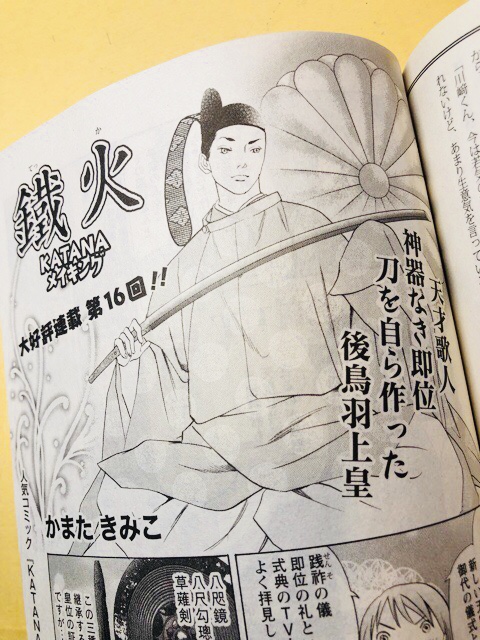 から、
「川﨑くん、今は若
れないけど、あまり生意気を言ってい
鐵火
てっ か
KATANA
メイキング
大好評連載 第16回!!
天才歌人
神器なき即位
刀を自ら作った
後鳥羽上皇
かまたきみこ
人気コミック「KATANA
新しい天
御代の儀式
践祚の儀
せんそ
即位の礼と
式典のTV
よく拝見し
八咫鏡
八尺勾璁
草薙剣
この三種
継承する
皇位の証
ですが